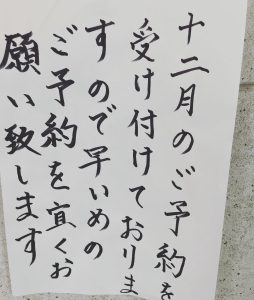 十二月のご予約を
受け付けておりま
すので早いめの
ご予約を宜くお
願い致します